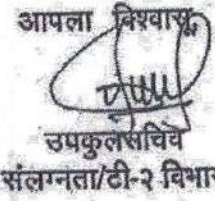 आपला विश्वासू,
उपकुलसचिव
संलग्नता/टी-२ विभाग